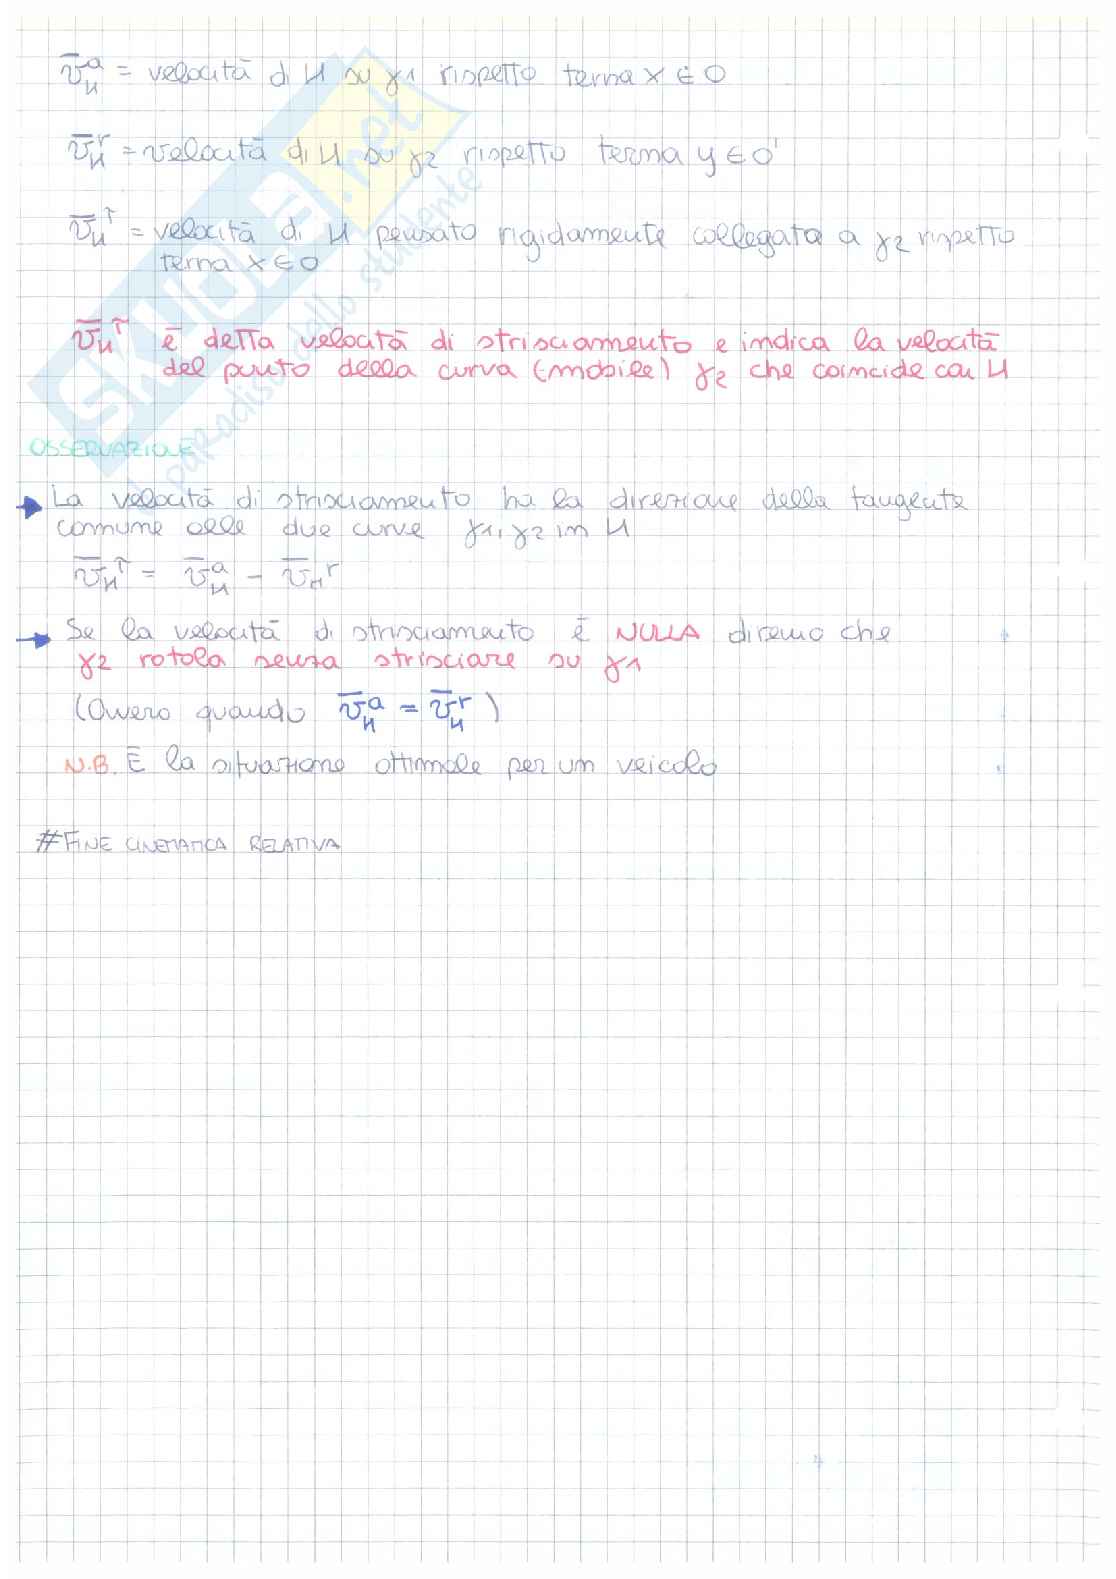 v̄_H^a = velocità di H su γ1 rispetto terna x ∈ O
v̄_H^r = velocità di H su γ2 rispetto terma y ∈ O'
v̄_H^τ = velocità di H pensato rigidamente collegata a γ2 rispetto
terna x ∈ O
v̄_H^τ è detta velocità di strisciamento e indica la velocità
del punto della curva (mobile) γ2 che coincide con H
OSSERVAZIONE
→ La velocità di strisciamento ha la direzione della tangente
comune alle due curve γ1, γ2 in H
v̄_H^τ = v̄_H^a - v̄_H^r
→ Se la velocità di strisciamento è NULLA diremo che
γ2 rotola senza strisciare su γ1
(Ovvero quando v̄_H^a = v̄_H^r)
N.B. È la situazione ottimale per un veicolo
#FINE CINEMATICA RELATIVA
SKUOLA.net
il paradiso dello studente